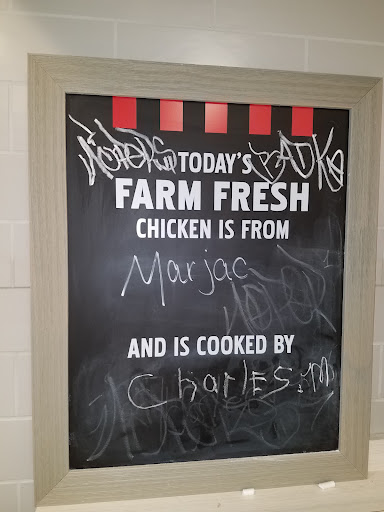 TODAY'S
FARM FRESH
CHICKEN IS FROM
Marjac
AND IS COOKED BY
CharlES.M